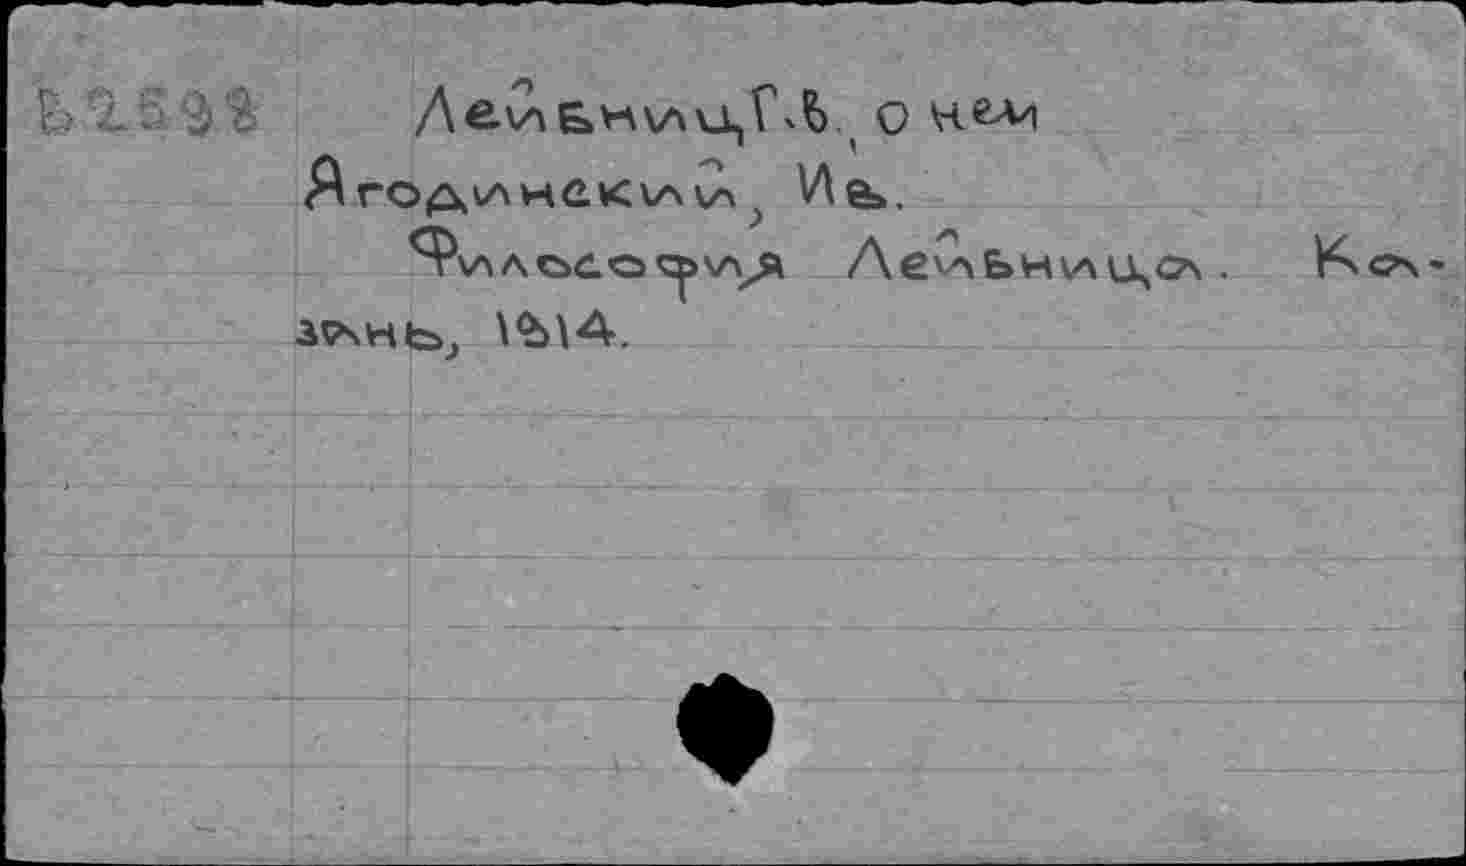 Б2598 Лейбниц, Г.В., о нем
Ягодинский, Ив.
Философия Лейбница. Ка-
зань, 1914.